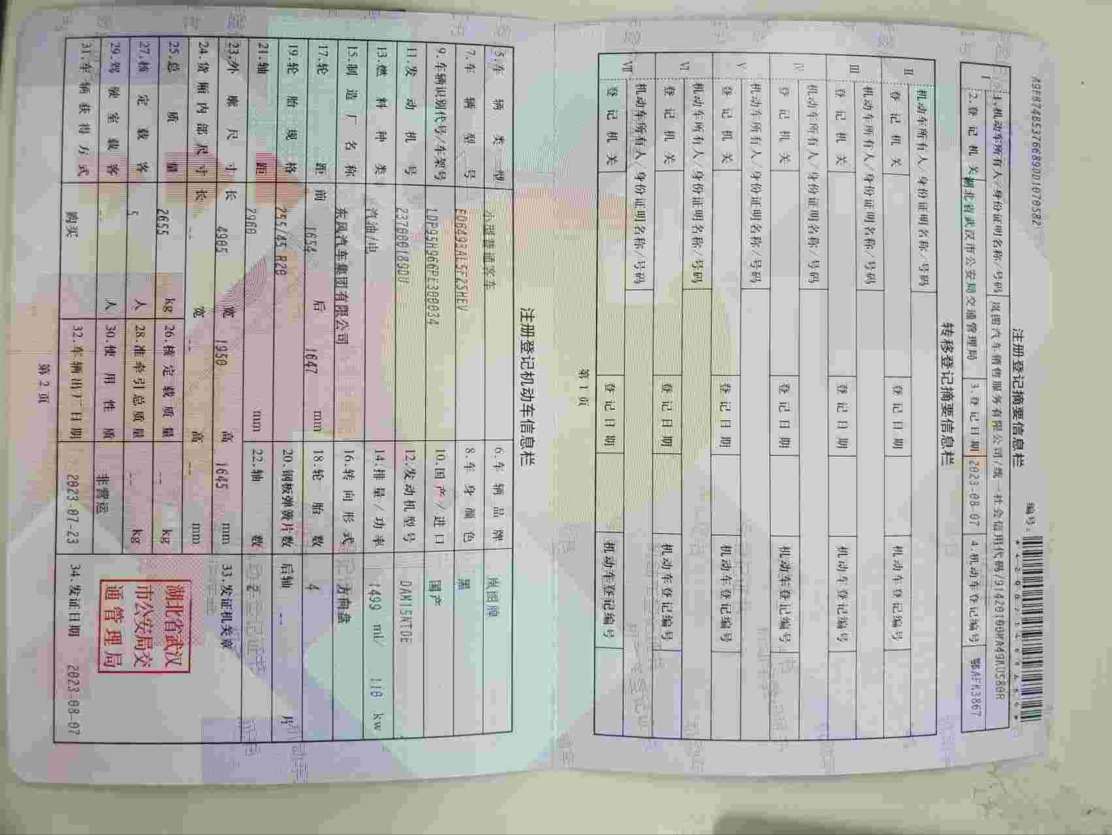 注册登记摘要信息栏
编号:
1.机动车所有人/身份证明名称/号码 岚图汽车销售服务有限公司/统一社会信用代码/91420100MA49KU580R
2.登记机关 湖北省武汉市公安局交通管理局 3.登记日期 2023-08-07 4.机动车登记编号 鄂AFK3867
转移登记摘要信息栏
Ⅱ 机动车所有人/身份证明名称/号码
登记机关 登记日期 机动车登记编号
Ⅲ 机动车所有人/身份证明名称/号码
登记机关 登记日期 机动车登记编号
Ⅳ 机动车所有人/身份证明名称/号码
登记机关 登记日期 机动车登记编号
Ⅴ 机动车所有人/身份证明名称/号码
登记机关 登记日期 机动车登记编号
Ⅵ 机动车所有人/身份证明名称/号码
登记机关 登记日期 机动车登记编号
Ⅶ 机动车所有人/身份证明名称/号码
登记机关 登记日期 机动车登记编号
第1页
注册登记机动车信息栏
5.车辆类型 小型普通客车 6.车辆品牌 岚图牌
7.车辆型号 8.车身颜色 黑
9.车辆识别代号/车架号 10.国产/进口 国产
11.发动机号 12.发动机型号 DAM15NTDE
13.燃料种类 汽油/电 14.排量/功率 1499 ml/ 110 kw
15.制造厂名称 东风汽车集团有限公司 16.转向形式 方向盘
17.轮距 前 1654 后 1647 mm 18.轮胎数 4
19.轮胎规格 255/45 R20 20.钢板弹簧片数 后轴 -- 片
21.轴距 2960 mm 22.轴数 2
23.外廓尺寸 长 4905 宽 1950 高 1645 mm
33.发证机关章
24.货厢内部尺寸 长 -- 宽 -- 高 -- mm
25.总质量 2655 kg 26.核定载质量 -- kg
27.核定载客 5 人 28.准牵引总质量 -- kg
29.驾驶室载客 -- 人 30.使用性质 非营运
31.车辆获得方式 购买 32.车辆出厂日期 2023-07-23
湖北省武汉
市公安局交
通管理局
34.发证日期 2023-08-07
第2页